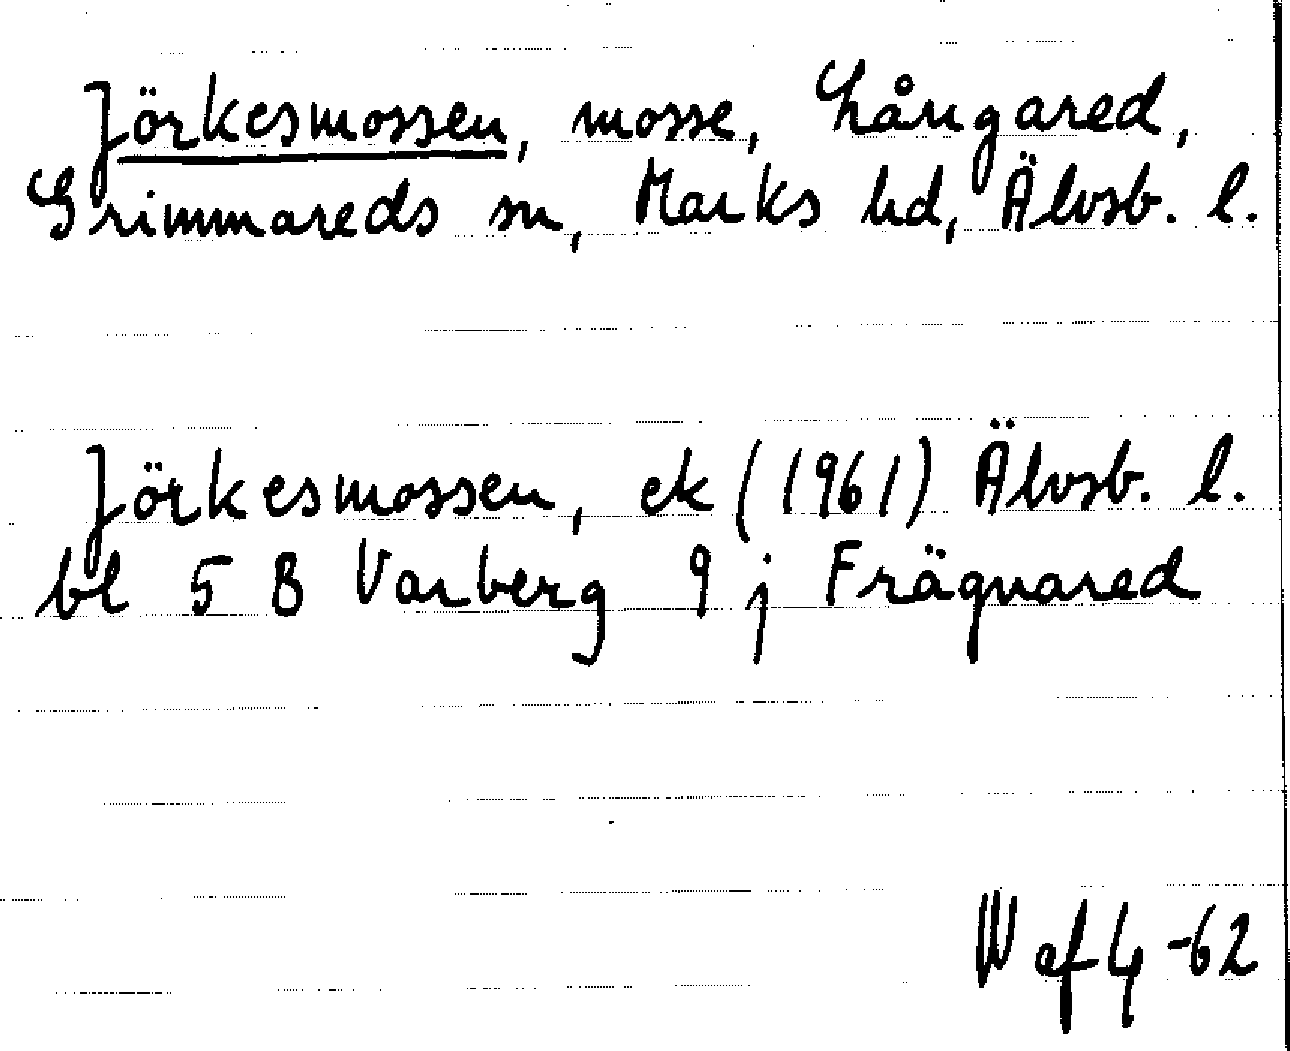 Jörkesmossen, mosse, Långared,
Grimmareds sn, Marks hd, Älvsb. l.
Jörkesmossen, ek (1961) Älvsb. l.
bl 5 B Varberg 9 j Frägnared
W af G -62